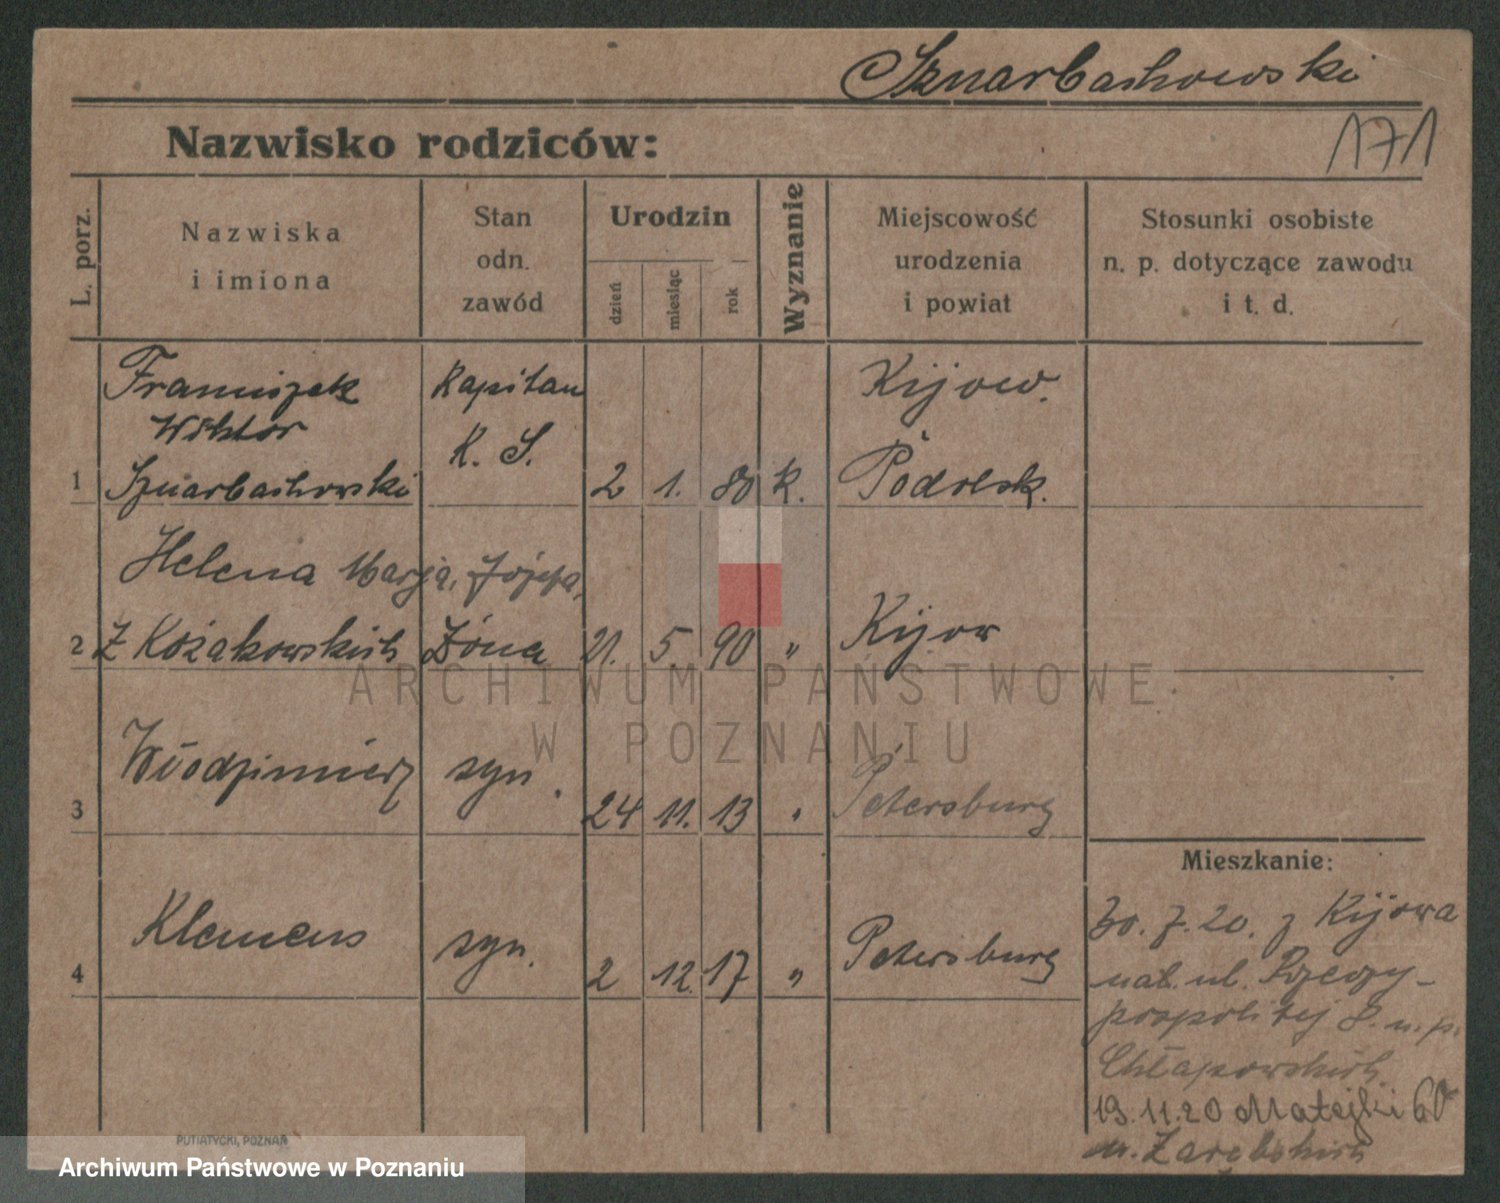 Sznarbachowski
171
Nazwisko rodziców:
L. porz.
Nazwiska
i imiona
Stan
odn.
zawód
Urodzin
dzień
miesiąc
rok
Wyznanie
Miejscowość
urodzenia
i powiat
Stosunki osobiste
n. p. dotyczące zawodu
i t. d.
Franciszek
Wiktor
1 Sznarbachowski
Kapitan
K. S.
2 1. 80 k.
Kijow.
Podolsk.
Helena Marja, Józefa,
2 Z Kożakowskich Żona 21. 5. 90 „ Kijow
3 Włodzimierz syn. 24 11. 13 „ Petersburg
4 Klemens syn. 2 12. 17 „ Petersburg
Mieszkanie:
30. 7. 20. z Kijowa
ul. Rzeczy-
pospolitej 8. u. p.
Chłapowskich
19.11.20 Matejki 60
u. Zarębskich
PUTIATYCKI, POZNAŃ
ARCHIWUM PAŃSTWOWE
W POZNANIU
Archiwum Państwowe w Poznaniu